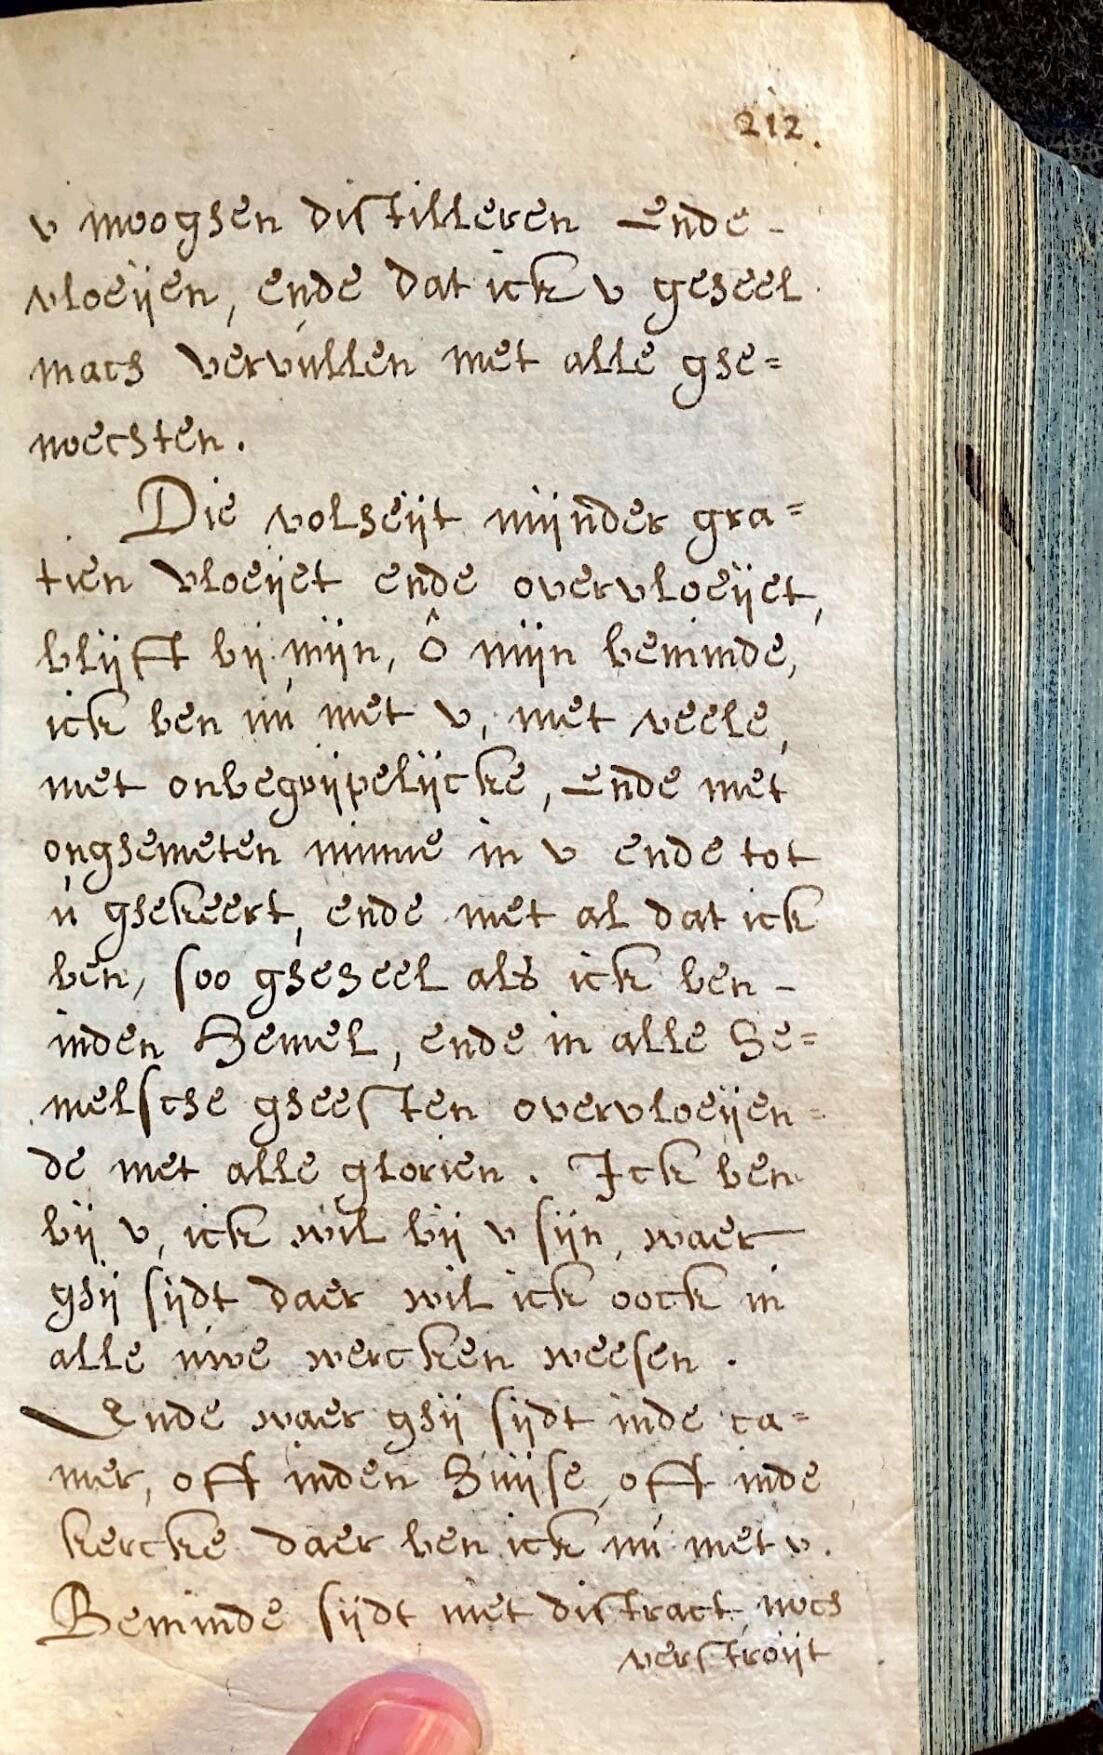 212.
v mooghen distilleren Ende -
vloeijen, ende dat ick v geheel
mach vervúllen met alle ghe=
noechten.
Die volheijt mijnder gra=
tien vloeijet ende overvloeijet,
blijft bij mijn, ô mijn beminde,
ick ben nú met v, met veele,
met onbegrijpelijcke, Ende met
onghemeten minne in v ende tot
ú ghekeert, ende met al dat ick
ben, soo gheheel als ick ben -
inden Hemel, ende in alle he=
melsche gheesten overvloeijen=
de met alle glorien. Ick ben
bij v, ick wil bij v sijn, waer
ghij sijdt daer wil ick oock in
alle úwe wercken weesen.
Ende waer ghij sijdt inde ca=
mer, oft inden húijse, oft inde
kercke daer ben ick nú met v.
Beminde sijdt niet distract, noch
verstroijt